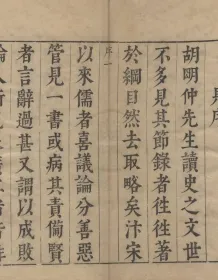 序
胡明仲先生讀史之文世
不多見其節錄者徃徃著
於綱目然去取略矣汴宋
序一
以來儒者喜議論分善惡
管見一書或病其責備賢
者言辭過甚又謂以成敗
論人